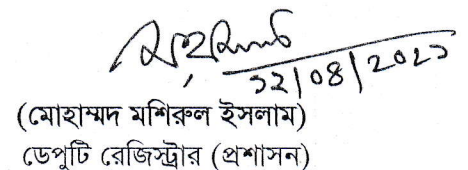 ১২/০৪/২০২১
(মোহাম্মদ মশিরুল ইসলাম)
ডেপুটি রেজিস্ট্রার (প্রশাসন)